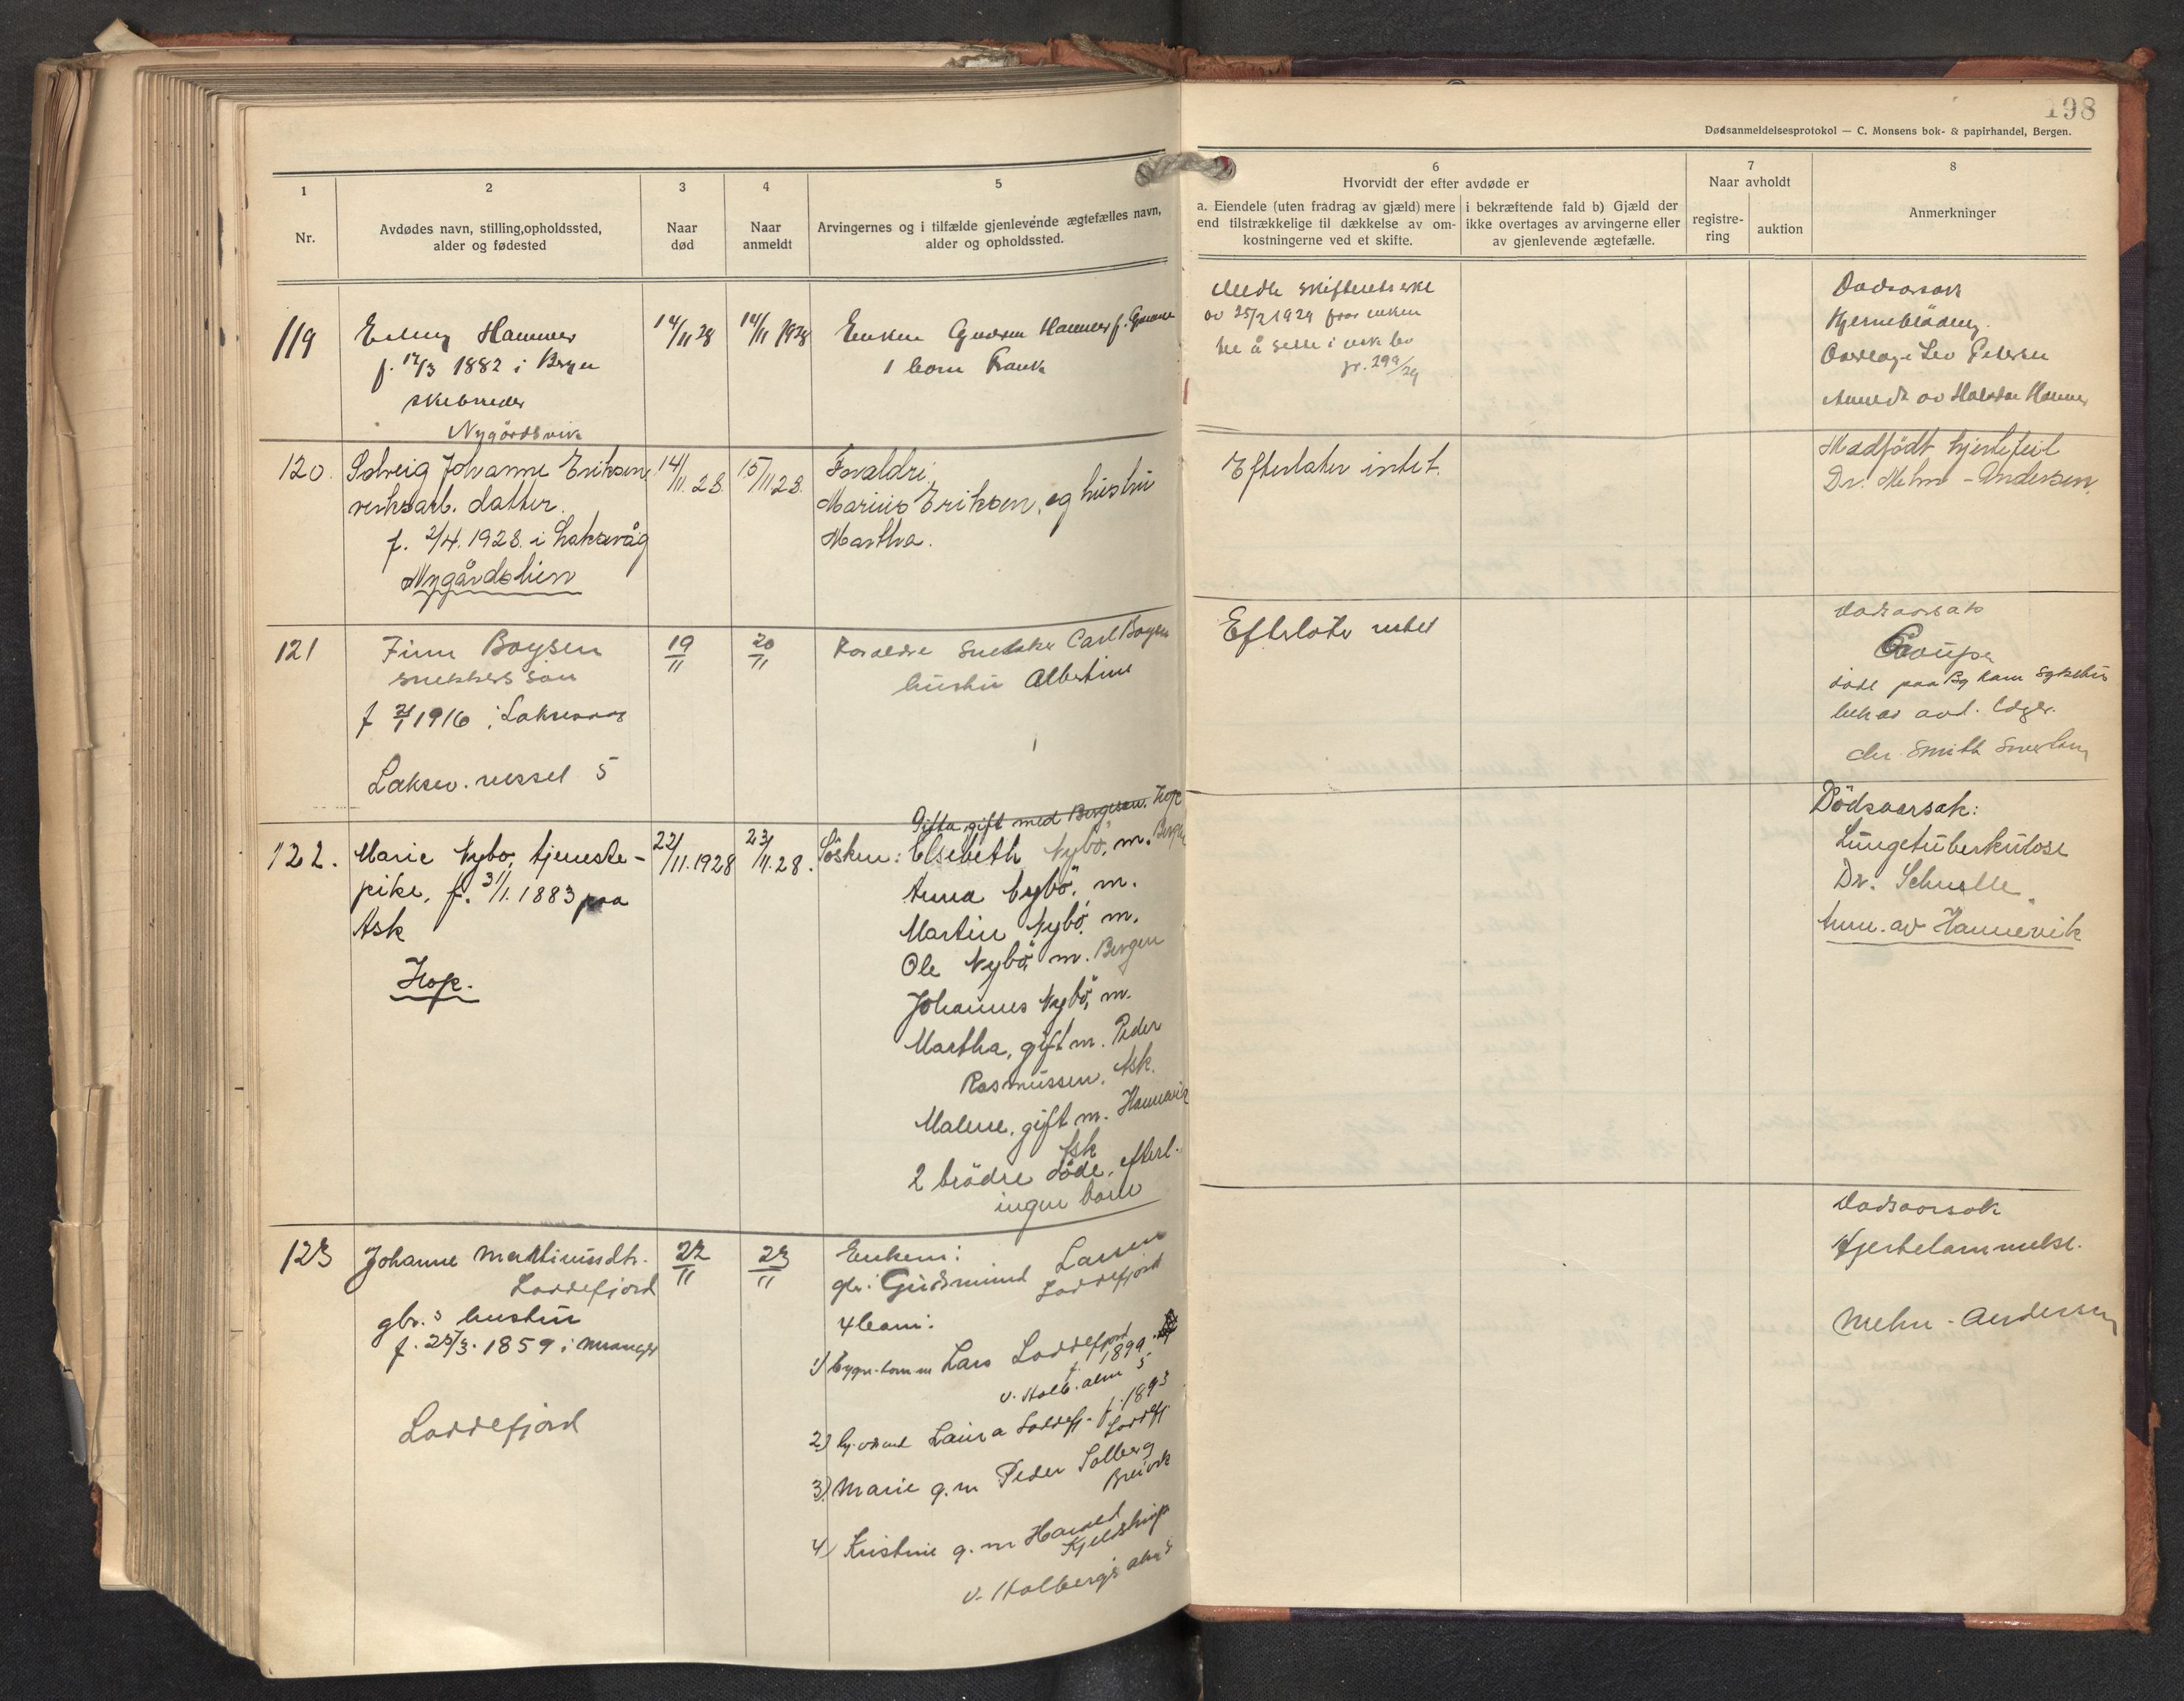 198
Dødsanmeldelsesprotokol — C. Monsens bok- & papirhandel, Bergen.
1
Nr.
2
Avdødes navn, stilling, opholdssted,
alder og fødested
3
Naar
død
4
Naar
anmeldt
5
Arvingernes og i tilfælde gjenlevende ægtefælles navn,
alder og opholdssted.
6
Hvorvidt der efter avdøde er
a. Eiendele (uten fradrag av gjæld) mere
end tilstrækkelige til dækkelse av om-
kostningerne ved et skifte.
i bekræftende fald b) Gjæld der
ikke overtages av arvingerne eller
av gjenlevende ægtefælle.
7
Naar avholdt
registre-
ring
auktion
8
Anmerkninger
119
Hammer
f. 17/3 1882 i Bergen
Nygårdsvik
14/11 28
14/11 1928
Enken Gudrun Hammer f.
1 barn Frank
Meddt skifterets
av 25/2 1929 for enken
til å sitte i uskiftet bo
jr. 299/29
Dødsaarsak
Hjerneblødning.
Overlæge Leo Petersen
Anmeldt av Hammer
120.
Solveig Johanne Eriksen,
verksarb. datter.
f. 2/4. 1928. i Laksevåg
Nygårdslien
14/11. 28.
15/11 28.
Foreldre:
Marius Eriksen, og hustru
Martha.
Efterlater intet.
Medfødt hjertefeil
Dr. Mehn-Andersen.
121
Finn Boysen
snekkers søn
f 21/1 1916 i Laksevaag
Laksev. nessel 5
19/11
20/11
Foreldre Snekker Carl Boysen
hustru Albertine
Efterlater intet
Dødsaarsak
Croup
døde paa Bg kom sykehus
avd. Læge.
dr Smith
122.
Marie Nybø, tjeneste-
pike, f. 31/1. 1883 paa
Ask
Hop.
22/11. 1928
23/11. 28.
Gitta gift med Bergesen. Hop
Søsken: Elsebeth Nybø, m. Bergen
Anna Nybø, m.
Martin Nybø, m.
Ole Nybø, m. Bergen
Johannes Nybø, m.
Martha, gift m. Peder
Rasmussen, Ask.
Malene, gift m. Hannevik
Ask
2 brødre døde, efterl.
ingen barn
Dödsaarsak:
Lungetuberkulose
Dr. Schnelle.
Anm. av Hannevik
123
Johanne Martinusdtr.
Loddefjord
gbr.s hustru
f. 25/3. 1859 i Manger
Loddefjord
22/11
23/11
Enkem:
gbr. Gudmund Larsen
Loddefjord
4 barn:
1) Lars Loddefjord
f. 1899
v. Holb. alm
2) Laura Loddefj. f. 1893
Loddefj.
3) Marie g. m Peder Solberg
Breivik
4) Kristine g. m Harald
v. Holbergs alm
Dødsaarsak
Hjertelammelse.
Mehn-Andersen